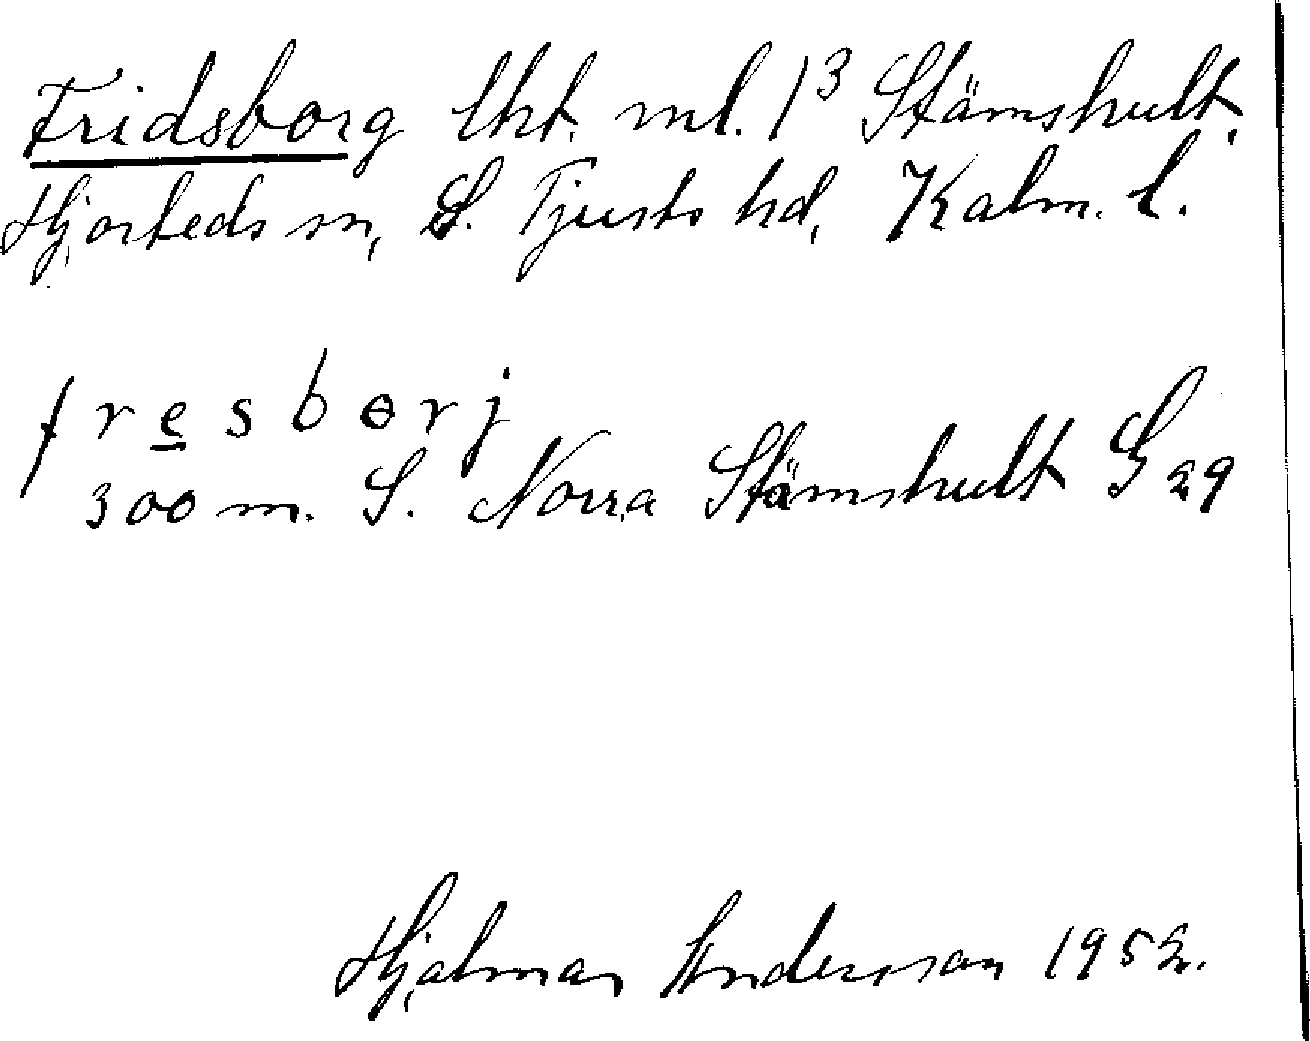 Fridsborg lht. ml. 1³ Stämshult.
Hjorteds sn, S. Tjusts hd, Kalm. l.
fresbɵrj
300 m. S. Norra Stämshult G 29
Hjalmar Andersson 1952.